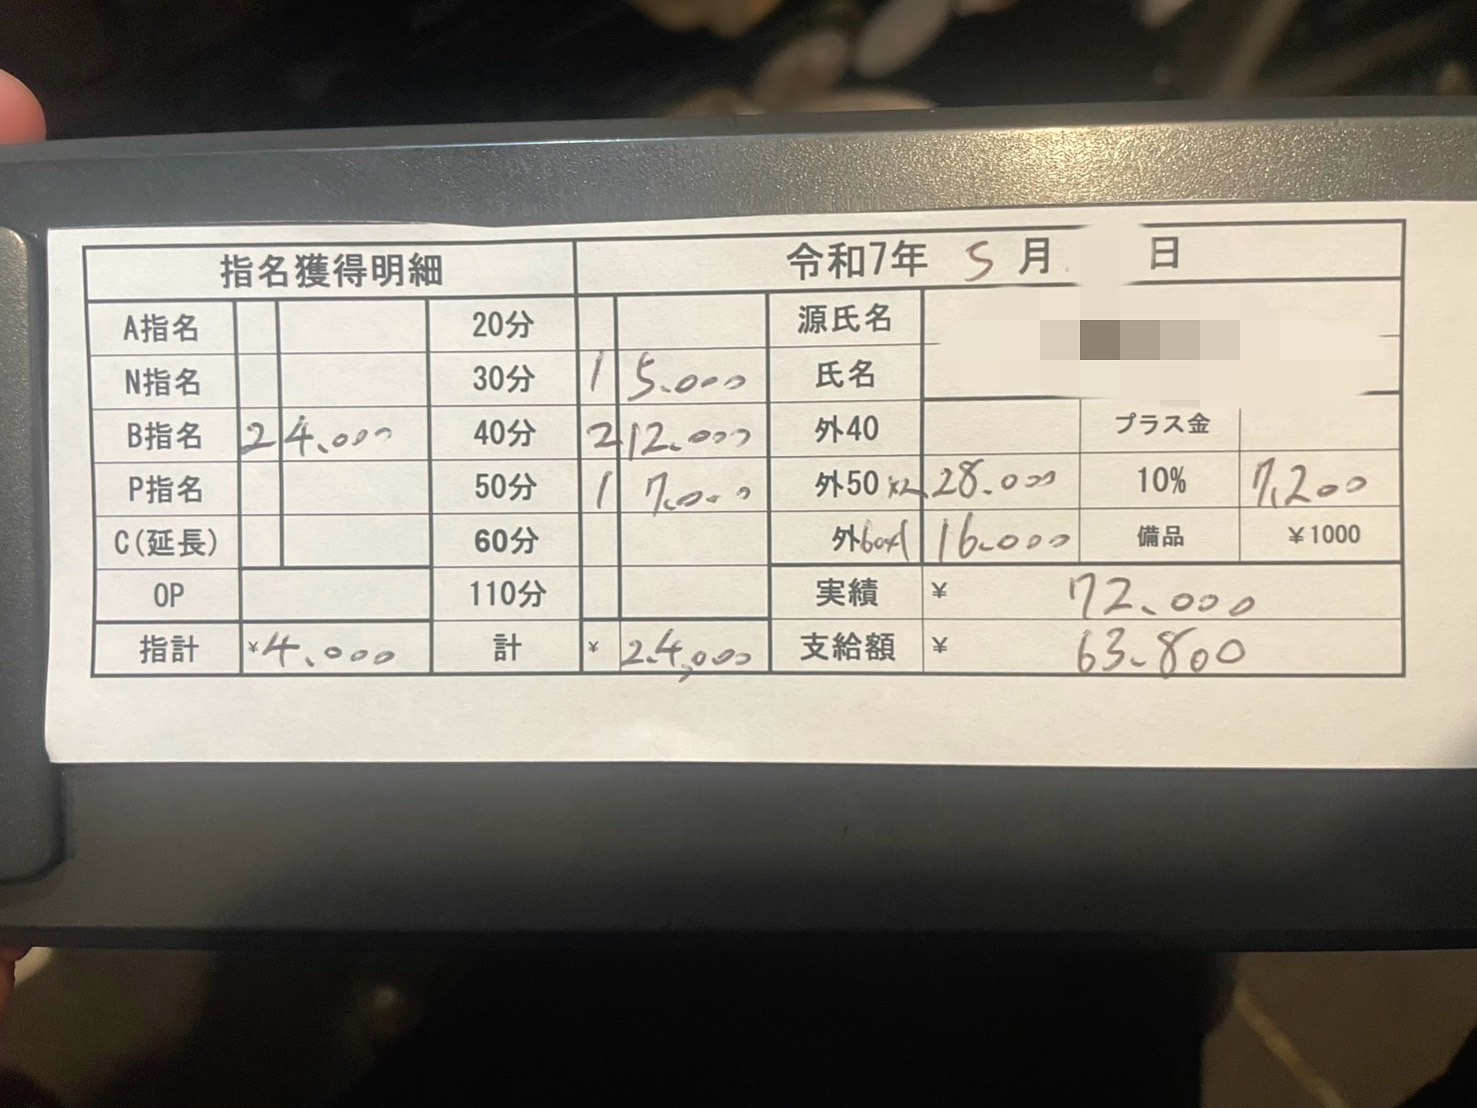 指名獲得明細 令和7年 5月 日
A指名 20分 源氏名
N指名 30分 1 5.000 氏名
B指名 2 4.000 40分 2 12.000 外40 プラス金
P指名 50分 1 7.000 外50 x2 28.000 10% 7,200
C(延長) 60分 外60x1 16.000 備品 ¥1000
OP 110分 実績 ¥ 72.000
指計 ¥4.000 計 ¥ 24,000 支給額 ¥ 63.800